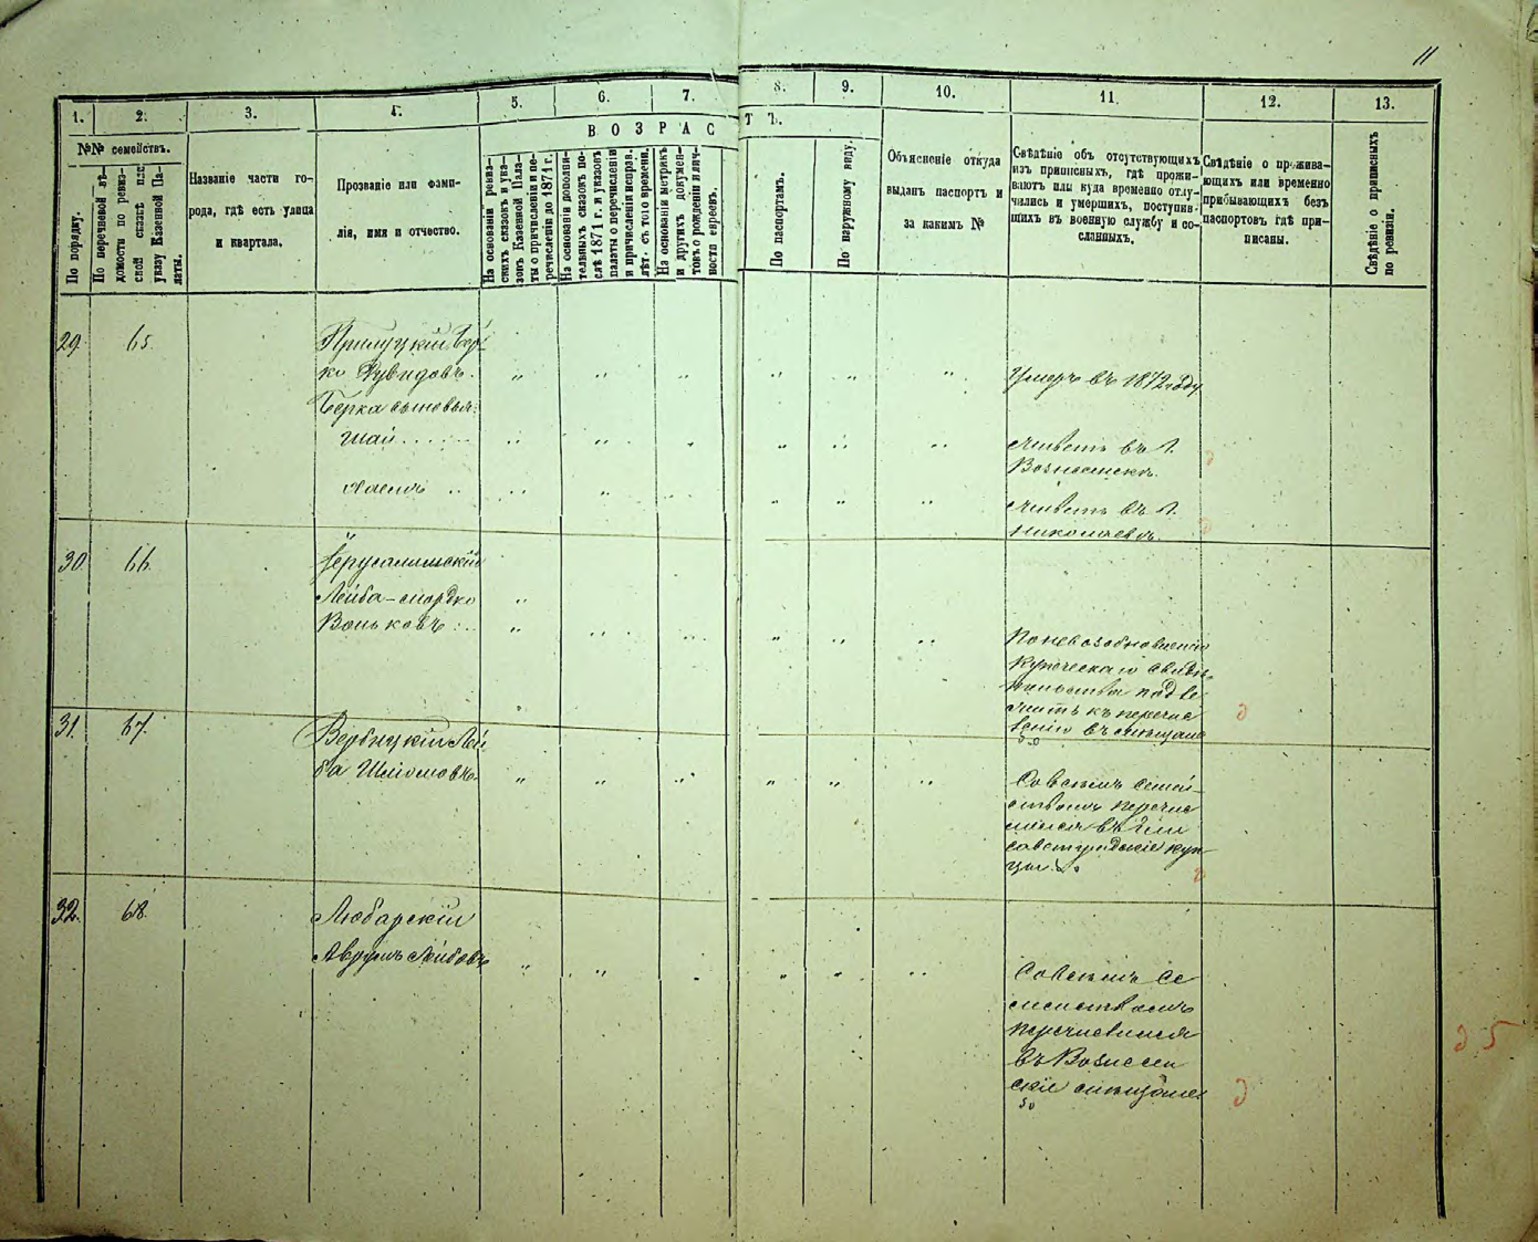 11
1. 2. 3. 4. 5. 6. 7. 8. 9. 10. 11. 12. 13.
№№ семействъ.
По порядку.
По перечневой вѣ-
домости по ревиз-
ской сказкѣ или
указу Казенной Па-
латы.
Названіе части го-
рода, гдѣ есть улица
и квартала.
Прозваніе или фами-
лія, имя и отчество.
ВОЗРАСТЪ.
На основаніи ревиз-
скихъ сказокъ и ука-
зовъ Казенной Пала-
ты о причисленіи и пе-
речисленіи до 1871 г.
На основаніи дополни-
тельныхъ сказокъ по-
слѣ 1871 г. и указовъ
палаты о перечисленіи
и причисленіи исправ.
лѣт. съ того времени.
На основаніи метрикъ
и другихъ докумен-
товъ о рожденіи и лич-
ности евреевъ.
По паспортамъ.
По наружному виду.
Объясненіе откуда
выданъ паспортъ и
за какимъ №
Свѣдѣніе объ отсутствующихъ
изъ приписныхъ, гдѣ прожи-
ваютъ или куда временно отлу-
чились и умершихъ, поступив-
шихъ въ военную службу и со-
сланныхъ.
Свѣдѣніе о прожива-
ющихъ или временно
прибывающихъ безъ
паспортовъ гдѣ при-
писаны.
Свѣдѣніе о приписныхъ
по ревизіи.
29. 65.
Прилуцкій Бер-
ко Дувидовъ.
Умеръ въ 1872 году
Берка сыновья:
Шая
Живетъ въ г.
Вознесенскѣ.
Хаимъ
Живетъ въ г.
Николаевѣ.
30. 66.
Іерусалимскій
Лейба-Мордко
Воль ковъ
По невозобновленію
купеческаго свидѣ-
тельства подле
житъ къ перечис
ленію въ мѣщане
31. 67.
Вербицкій Лей
ба Шліомовъ.
Со всѣмъ семей-
ствомъ перечис
лился въ
савет градскіе куп
цы.
32. 68.
Любарскій
Аврумъ Лейбовъ
Со всѣмъ се
мействомъ
перечислился
въ Вознесен
скіе мѣщане
д 5